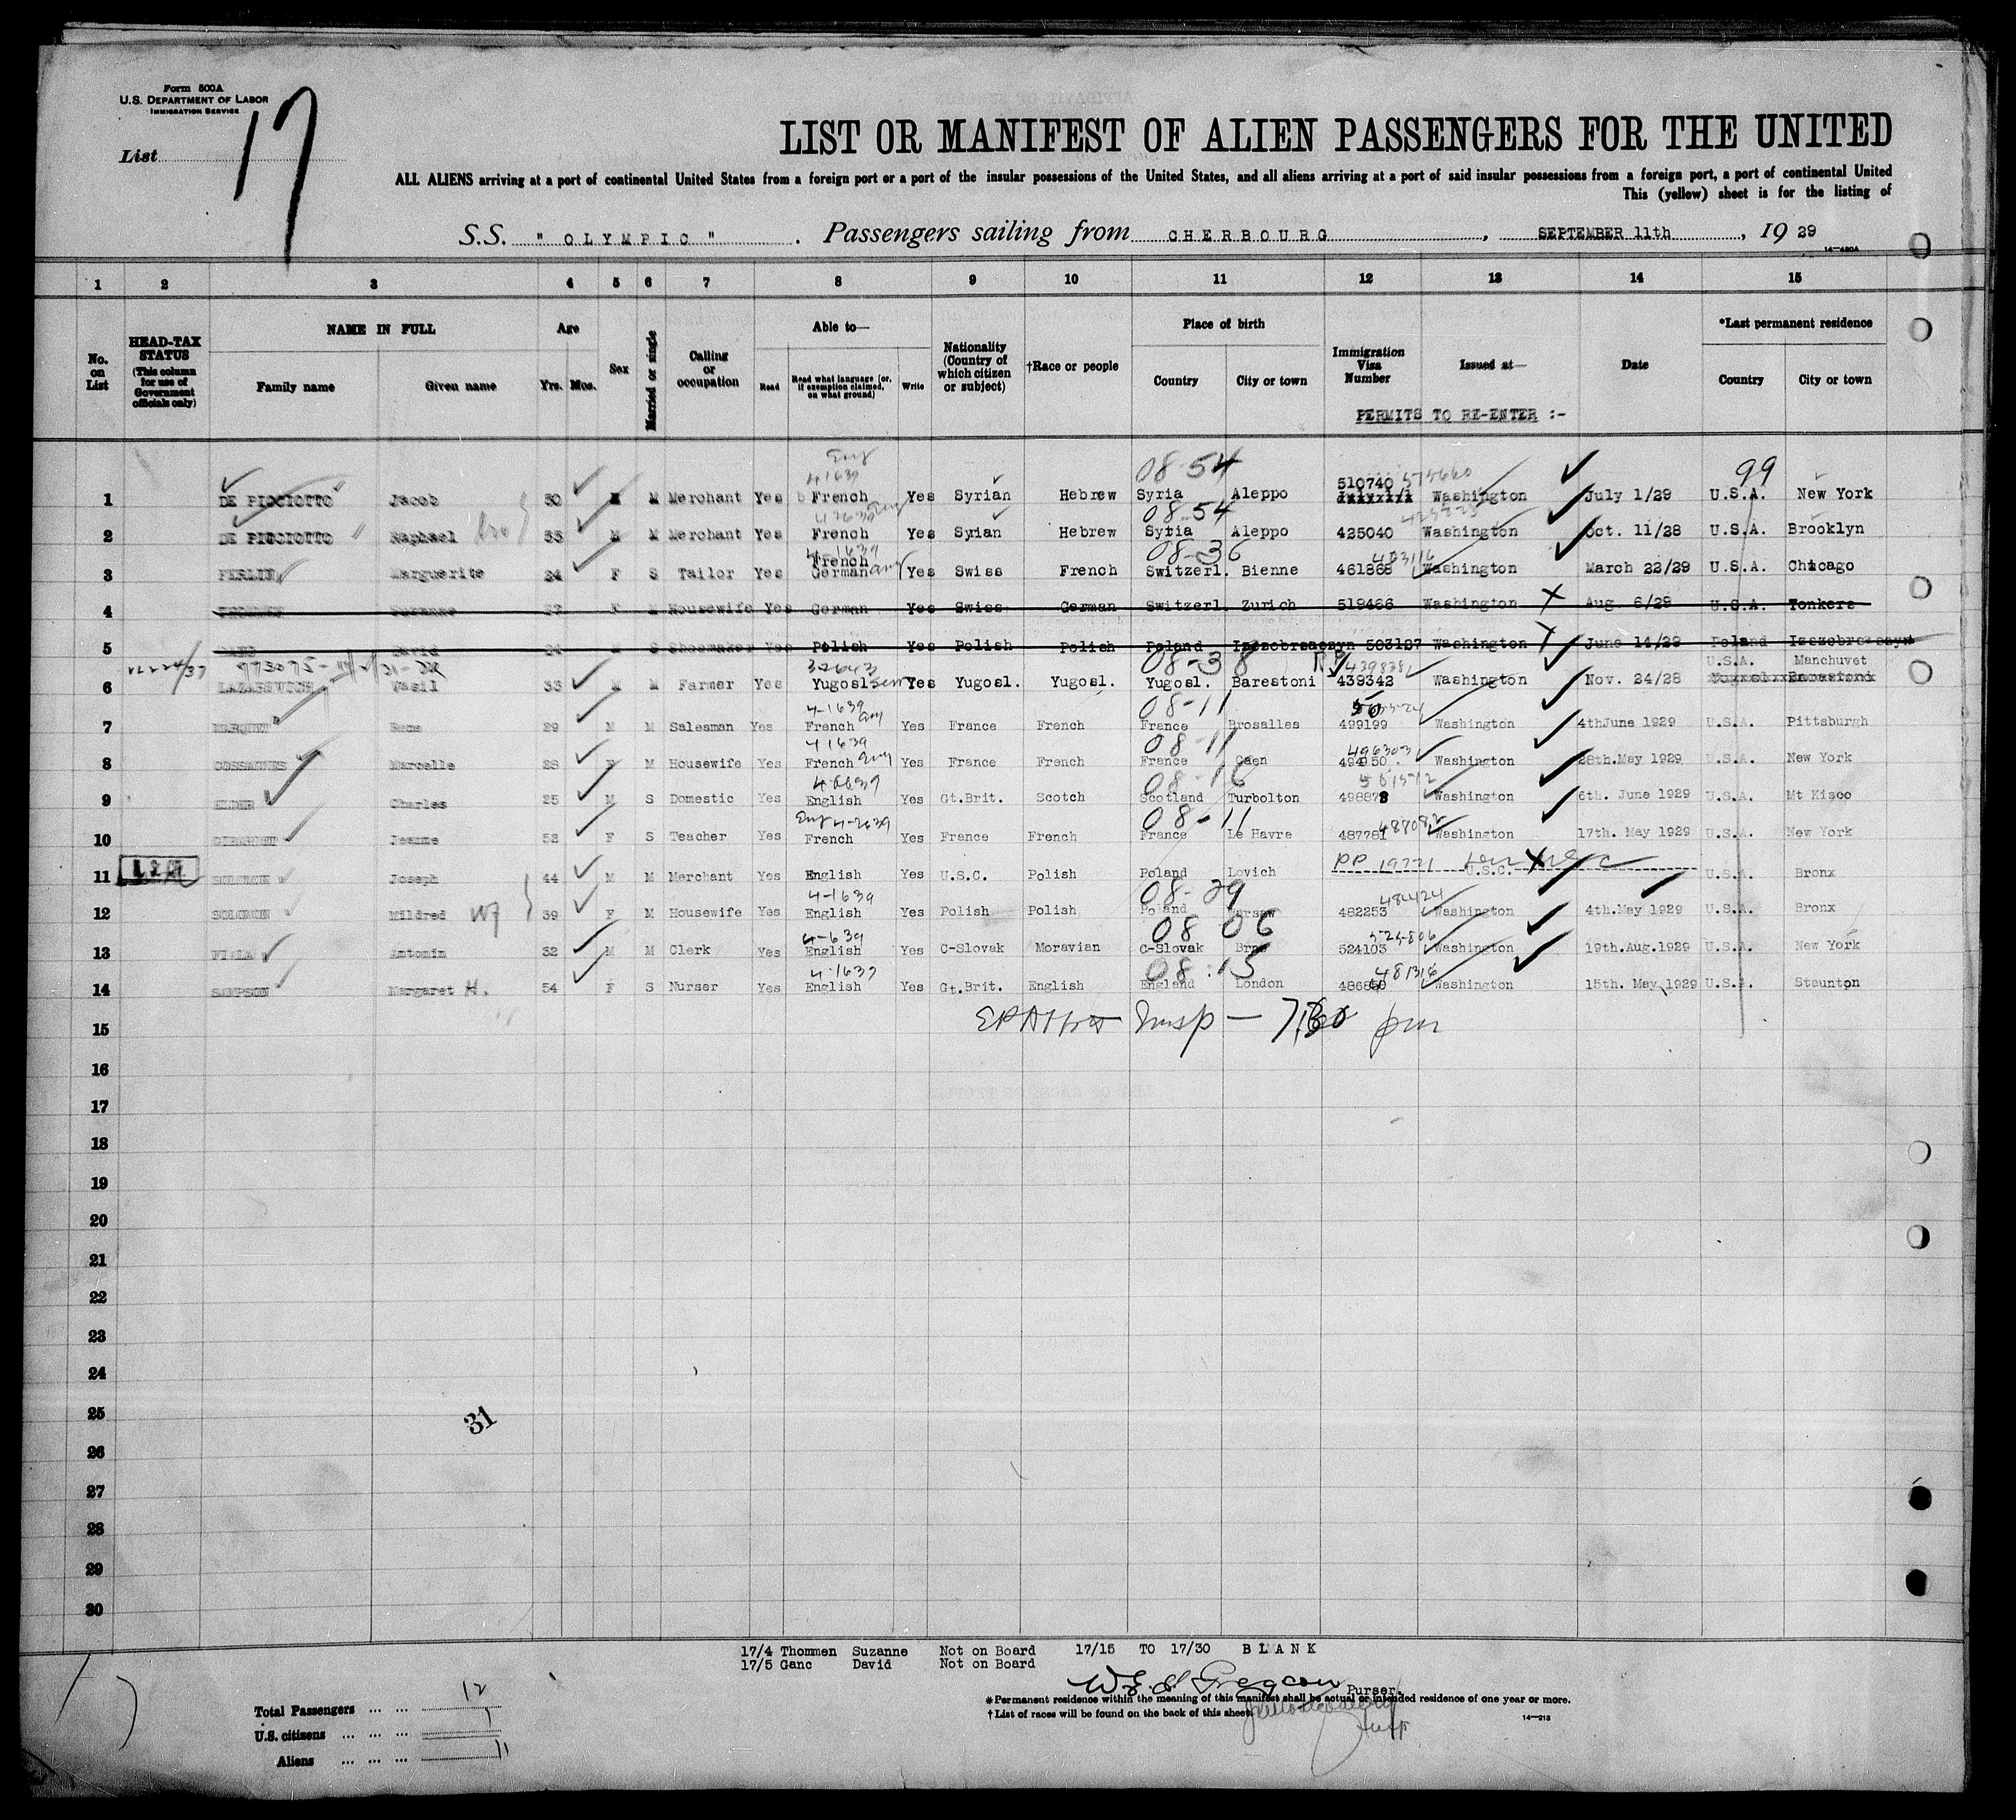 Form 500A
U.S. DEPARTMENT OF LABOR
IMMIGRATION SERVICE
List 17
LIST OR MANIFEST OF ALIEN PASSENGERS FOR THE UNITED
ALL ALIENS arriving at a port of continental United States from a foreign port or a port of the insular possessions of the United States, and all aliens arriving at a port of said insular possessions from a foreign port, a port of continental United
This (yellow) sheet is for the listing of
S.S. " OLYMPIC " . Passengers sailing from CHERBOURG , SEPTEMBER 11th , 19 29
14—420A
1 2 3 4 5 6 7 8 9 10 11 12 13 14 15
No. on List
HEAD-TAX STATUS (This column for use of Government officials only)
NAME IN FULL Family name Given name
Age Yrs. Mos.
Sex
Married or single
Calling or occupation
Able to— Read Read what language [or, if exemption claimed, on what ground] Write
Nationality (Country of which citizen or subject)
†Race or people
Place of birth Country City or town
Immigration Visa Number
Issued at—
Date
*Last permanent residence Country City or town
PERMITS TO RE-ENTER :-
Eng
4-1639 08-54 510740 99
1 DE PICCIOTTO Jacob 50 M M Merchant Yes French Yes Syrian Hebrew Syria Aleppo Washington July 1/29 U.S.A. New York
08-54
2 DE PICCIOTTO Raphael bro 33 M M Merchant Yes French Yes Syrian Hebrew Syria Aleppo 425040 Washington Oct. 11/28 U.S.A. Brooklyn
4-1639 French 08-36
3 PERLIN Marguerite 24 F S Tailor Yes German Yes Swiss French Switzerl. Bienne 461868 Washington March 22/29 U.S.A. Chicago
4 Suzanne F M Housewife Yes German Yes Swiss German Switzerl. Zurich 519466 Washington Aug. 6/29 U.S.A. Yonkers
5 David M S Shoemaker Yes Polish Yes Polish Polish Poland 503127 Washington June 14/29 Poland
08-38 U.S.A. Manchuvet
6 Vasil 33 M M Farmer Yes Yugosl. Yes Yugosl. Yugosl. Yugosl. Barestoni 439342 Washington Nov. 24/28
4-1639 08-11
7 29 M M Salesman Yes French Eng Yes France French France Brosalles 499199 Washington 4thJune 1929 U.S.A. Pittsburgh
4-1639 08-11
8 Marcelle 28 F M Housewife Yes French Eng Yes France French France Caen Washington 28th.May 1929 U.S.A. New York
08-16
9 ELDER Charles 25 M S Domestic Yes English Yes Gt.Brit. Scotch Scotland Turbolton 498878 Washington 6th. June 1929 U.S.A. Mt Kisco
Eng 4-2639 08-11
10 Jeanne 52 F S Teacher Yes French Yes France French France Le Havre 487781 Washington 17th. May 1929 U.S.A. New York
11 SOLOMON Joseph 44 M M Merchant Yes English Yes U.S.C. Polish Poland Lovich PP 19771 U.S.C. U.S.A. Bronx
4-1639 08-29 484424
12 SOLOMON Mildred wf 39 F M Housewife Yes English Yes Polish Polish Poland Warsaw 482253 Washington 4th.May 1929 U.S.A. Bronx
4-639 08 06
13 FIALA Antonin 32 M M Clerk Yes English Yes C-Slovak Moravian C-Slovak Brno 524103 Washington 19th.Aug.1929 U.S.A. New York
4-1639 08-15 481316
14 SAMPSON Margaret H. 54 F S Nurser Yes English Yes Gt.Brit. English England London Washington 15th. May 1929 U.S.A. Staunton
15 Insp — 7.30 pm
16
17
18
19
20
21
22
23
24
25
31
26
27
28
29
30
17/4 Thommen Suzanne Not on Board 17/15 TO 17/30 BLANK
17/5 Ganc David Not on Board
Purser.
Total Passengers 12
U.S. citizens 1
Aliens 11
*Permanent residence within the meaning of this manifest shall be actual or intended residence of one year or more.
†List of races will be found on the back of this sheet.
14—213